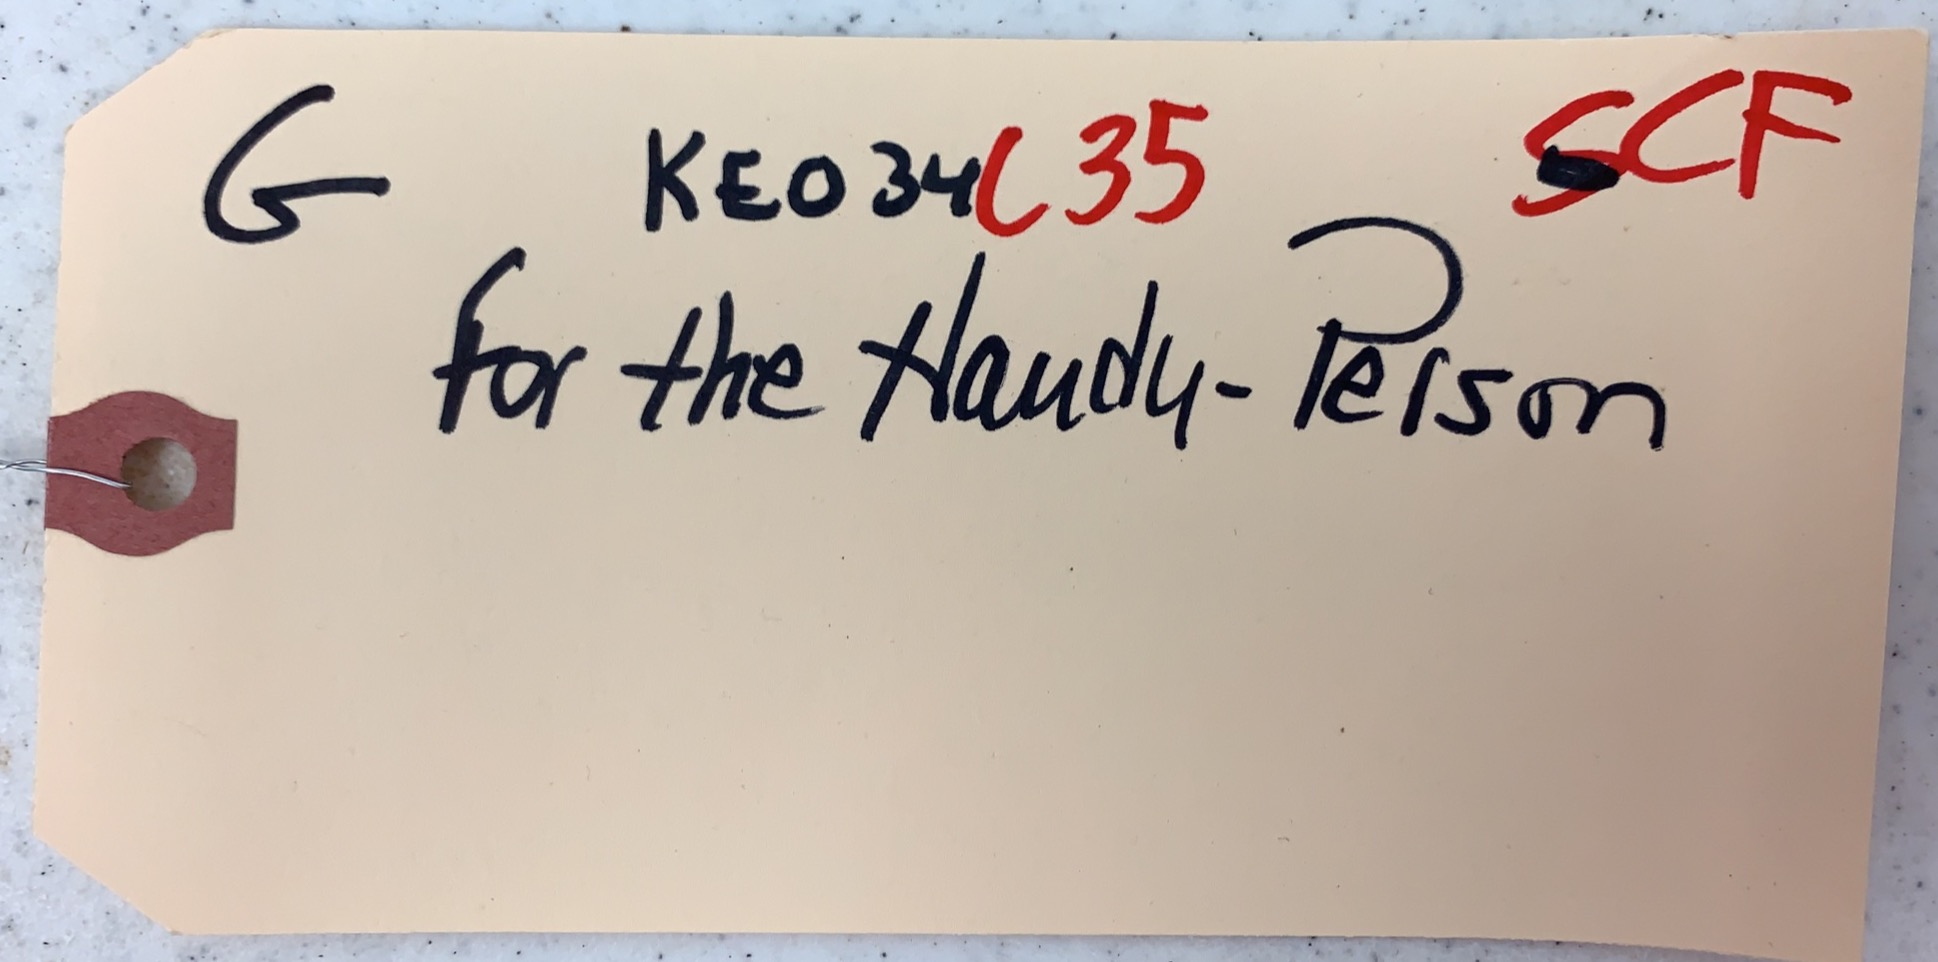 G KE034C35 SCF
for the Handy-Person